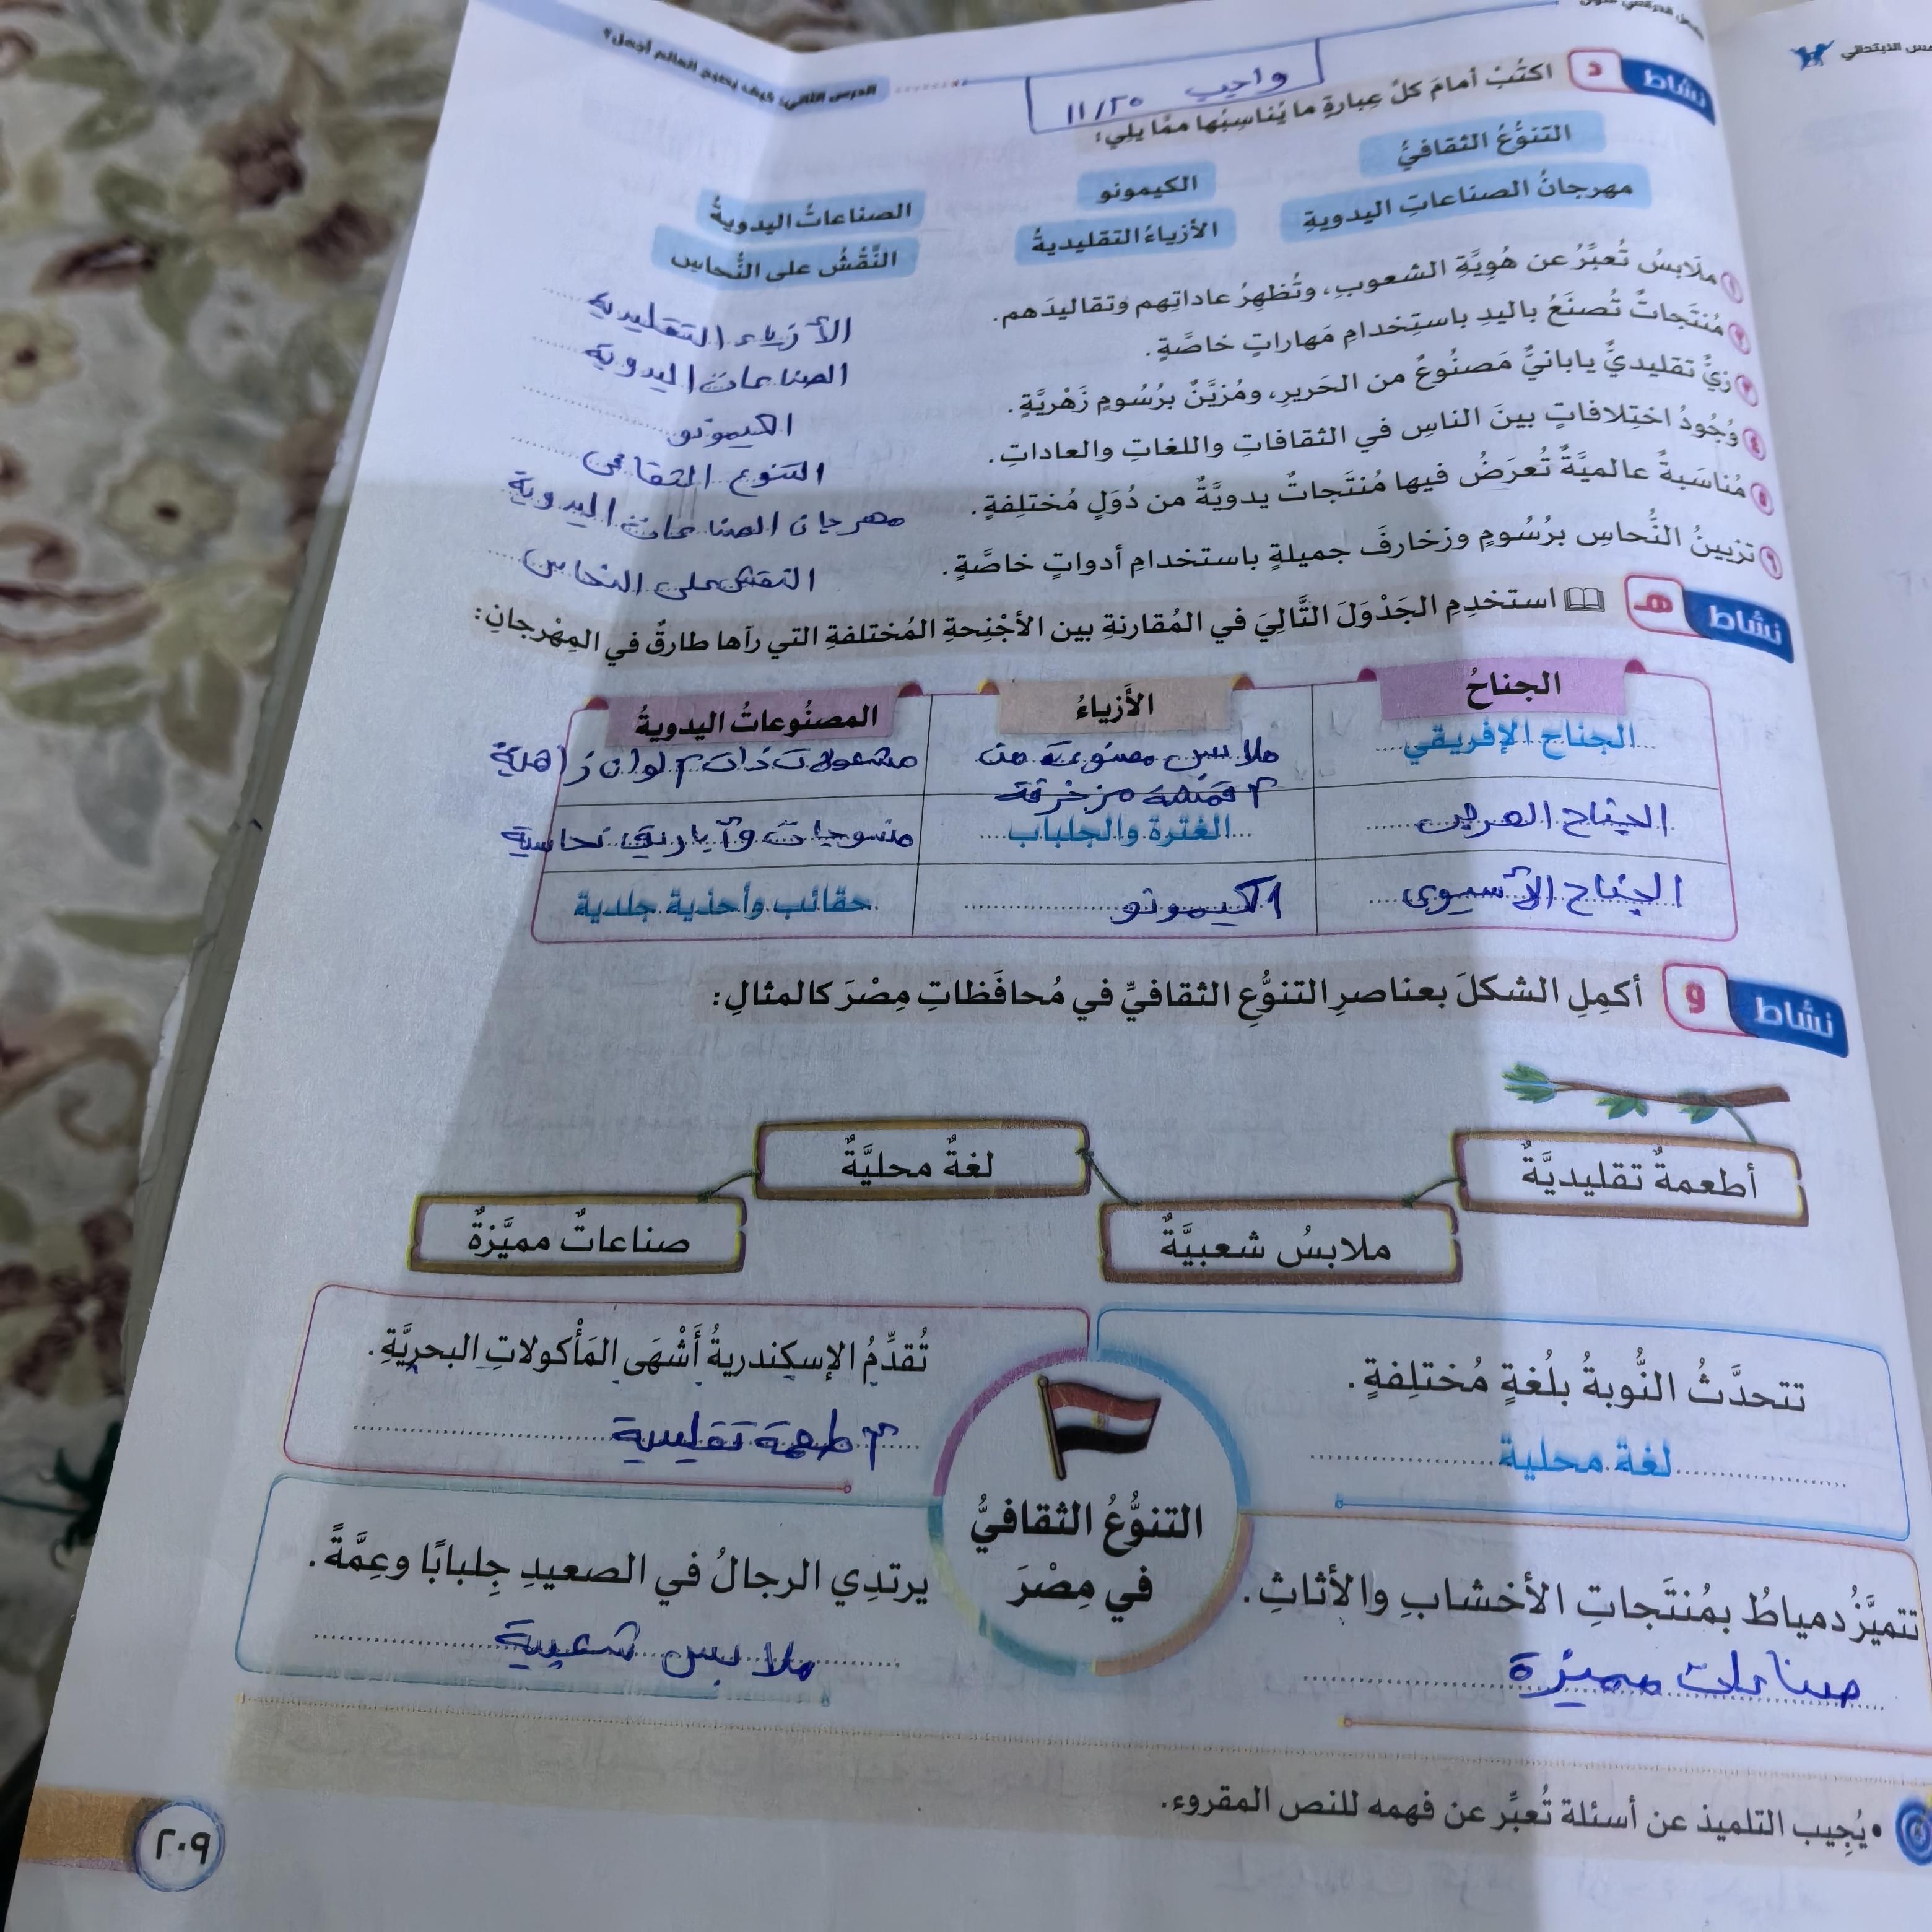 الدرس الثاني: كيف يصبح العالم أجمل؟
واجب ١١/٢٥
نشاط د اكتُبْ أمامَ كلِّ عِبارةٍ ما يُناسِبُها ممَّا يلي:
التنوُّعُ الثقافيُّ
الكيمونو
الصناعاتُ اليدويةُ
مهرجانُ الصناعاتِ اليدويةِ
الأزياءُ التقليديةُ
النَّقْشُ على النُّحاسِ
١ ملَابسُ تُعبِّرُ عن هُويَّةِ الشعوبِ، وتُظهِرُ عاداتِهم وتقاليدَهم. الأزياء التقليدية
٢ مُنتَجاتٌ تُصنَعُ باليدِ باستِخدامِ مَهاراتٍ خاصَّةٍ. الصناعات اليدوية
٣ زيٌّ تقليديٌّ يابانيٌّ مَصنُوعٌ من الحَريرِ، ومُزيَّنٌ برُسُومٍ زَهْريَّةٍ. الكيمونو
٤ وُجُودُ اختِلافاتٍ بينَ الناسِ في الثقافاتِ واللغاتِ والعاداتِ. التنوع الثقافى
٥ مُناسَبةٌ عالميَّةٌ تُعرَضُ فيها مُنتَجاتٌ يدويَّةٌ من دُوَلٍ مُختلِفةٍ. مهرجان الصناعات اليدوية
٦ تزيينُ النُّحاسِ برُسُومٍ وزخارفَ جميلةٍ باستخدامِ أدواتٍ خاصَّةٍ. النقش على النحاس
نشاط هـ استخدِمِ الجَدْوَلَ التَّالِيَ في المُقارنةِ بين الأجْنِحةِ المُختلفةِ التي رآها طارقٌ في المِهْرجانِ:
الجناحُ
الأَزياءُ
المصنُوعاتُ اليدويةُ
الجناح الإفريقي
ملابس مصنوعة من
أقمشة مزخرفة
مشغولات ذات ألوان زاهية
الجناح العربى
الغترة والجلباب
منسوجات وأباريق نحاسية
الجناح الآسيوى
الكيمونو
حقائب وأحذية جلدية
نشاط و أكمِلِ الشكلَ بعناصرِ التنوُّعِ الثقافيِّ في مُحافَظاتِ مِصْرَ كالمثالِ:
أطعمةٌ تقليديَّةٌ
ملابسُ شعبيَّةٌ
لغةٌ محليَّةٌ
صناعاتٌ مميَّزةٌ
تتحدَّثُ النُّوبةُ بلُغةٍ مُختلِفةٍ.
لغة محلية
تُقدِّمُ الإسكندريةُ أَشْهَى المَأْكولاتِ البحريَّةِ.
أطعمة تقليسية
التنوُّعُ الثقافيُّ
في مِصْرَ
تتميَّزُ دمياطُ بمُنتَجاتِ الأخشابِ والأثاثِ.
صناعات مميزة
يرتدِي الرجالُ في الصعيدِ جِلبابًا وعِمَّةً.
ملابس شعبية
• يُجِيب التلميذ عن أسئلة تُعبِّر عن فهمه للنص المقروء.
٢٠٩